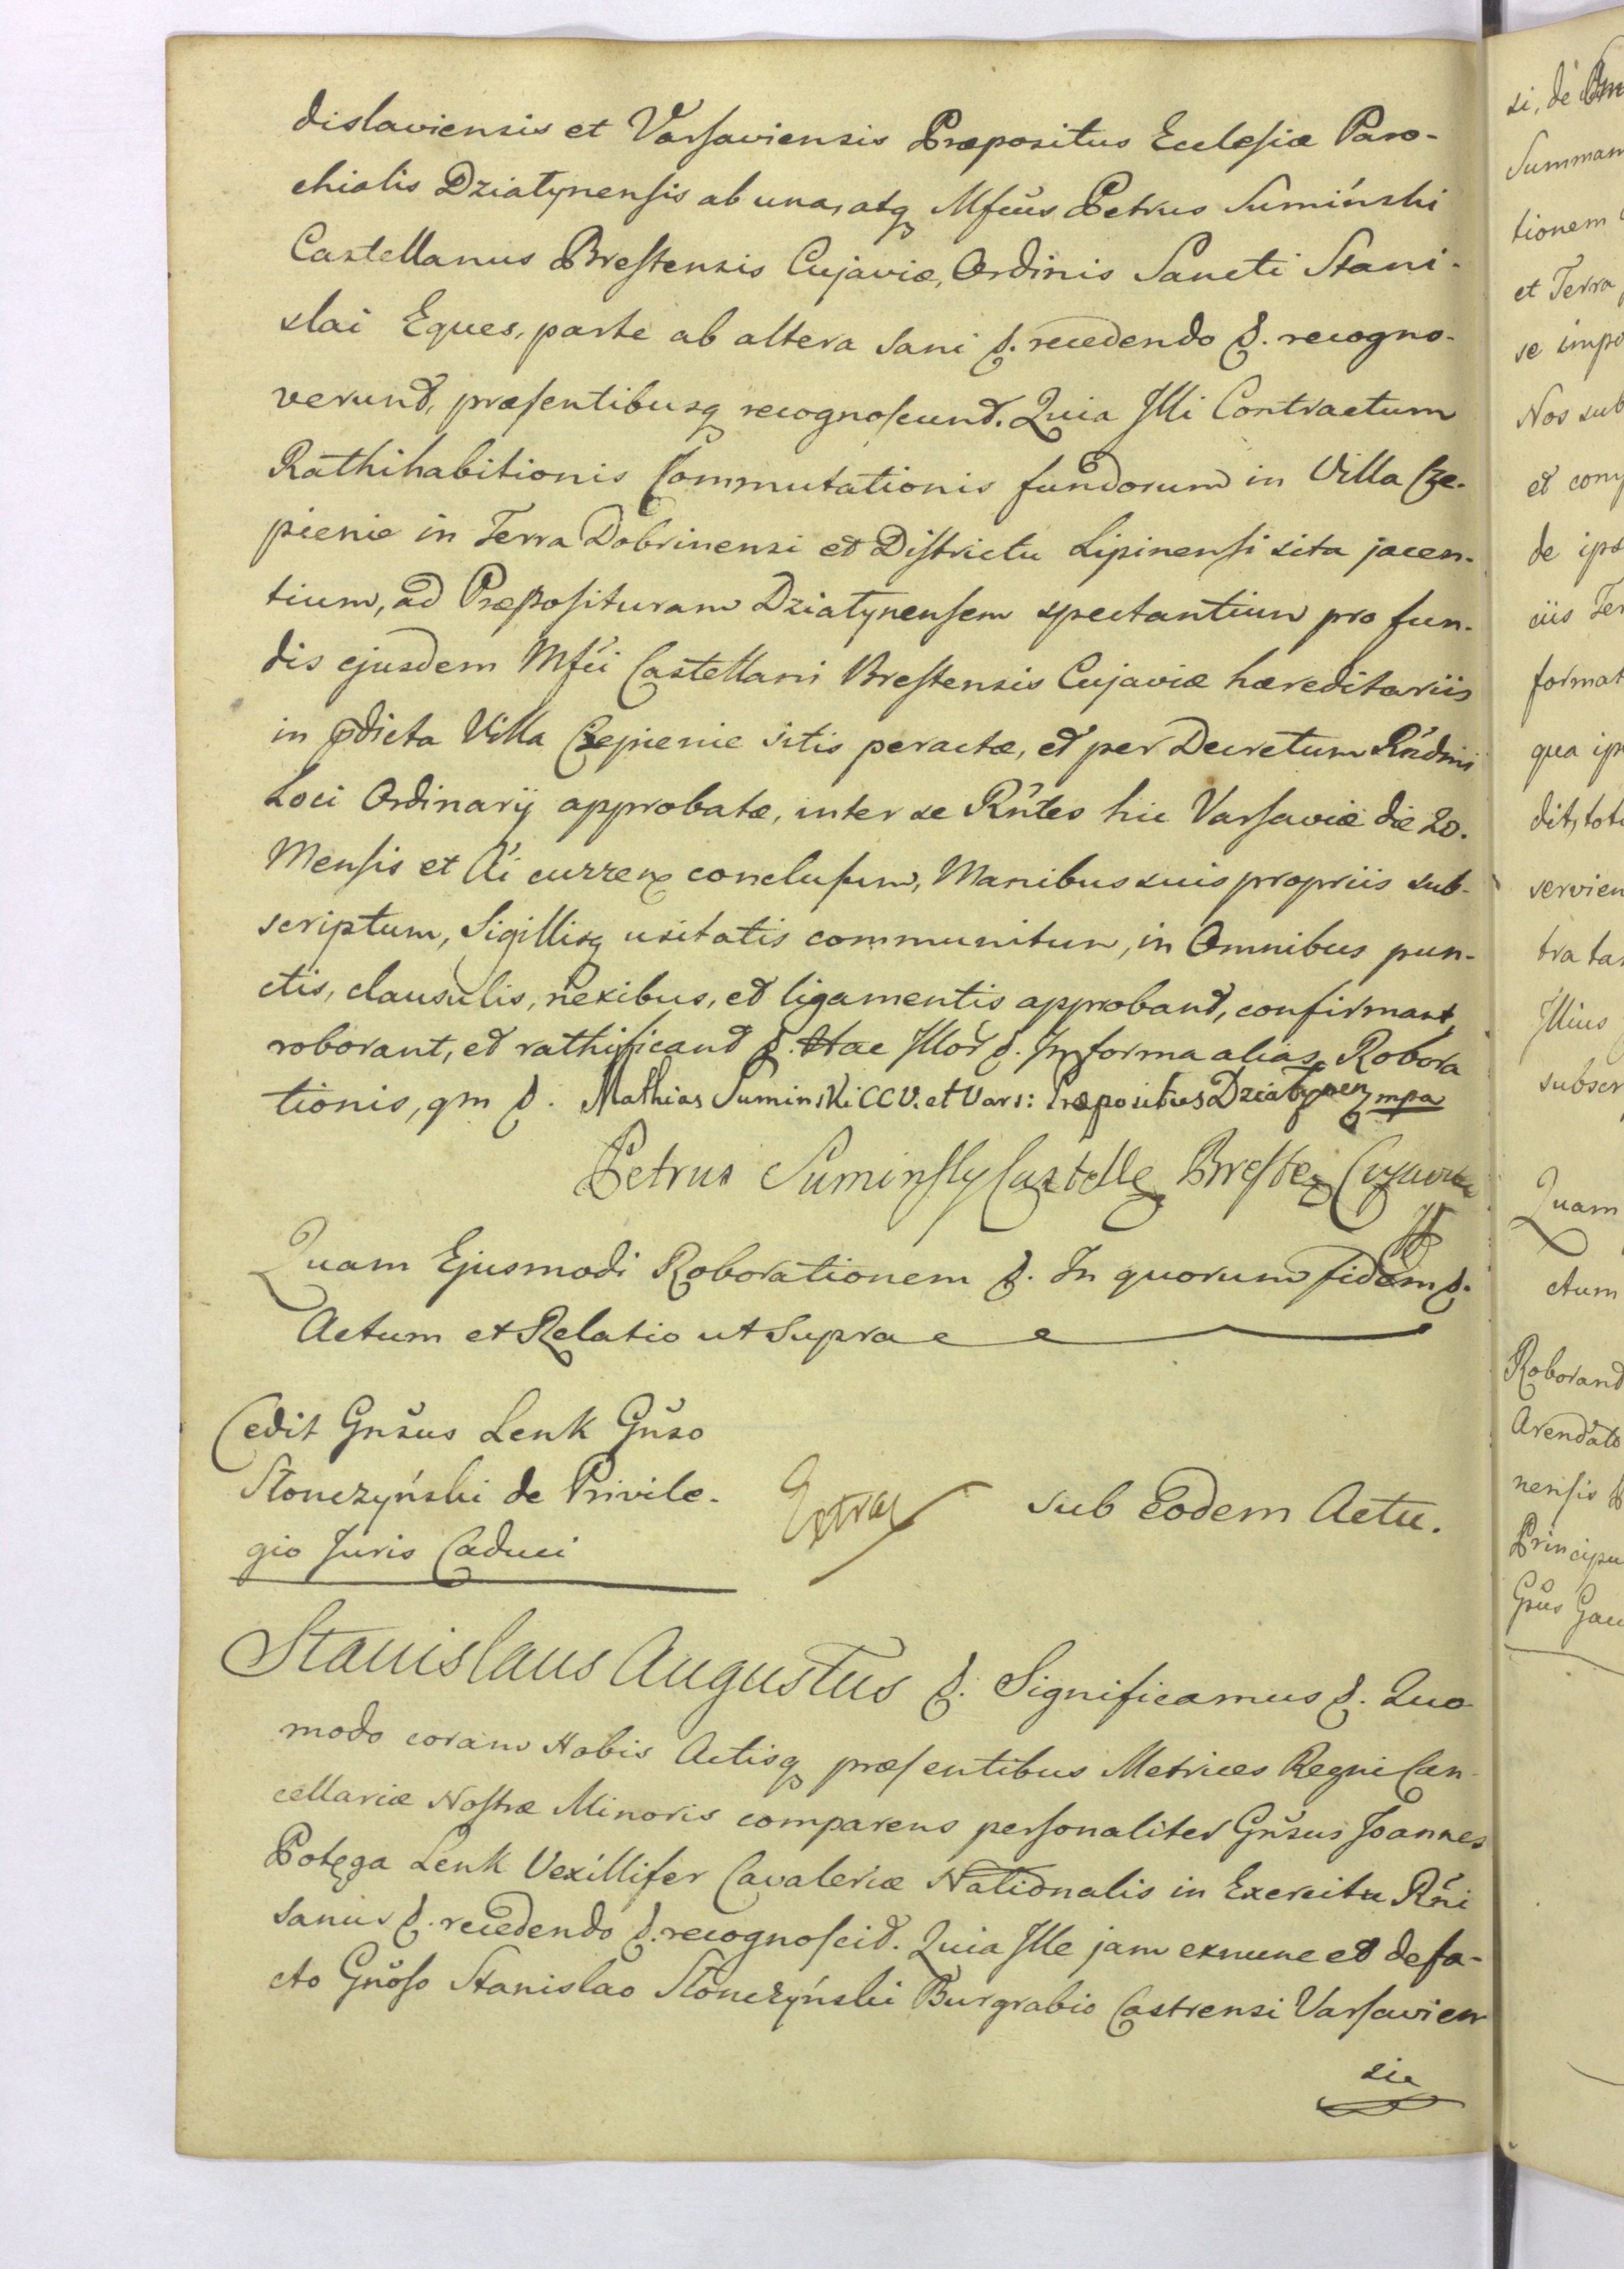 dislaviensis et Varsaviensis Præpositus Ecclesiæ Paro-
chialis Dziatynensis ab una, atq Mfcus Petrus Sumiński
Castellanus Brestensis Cujaviæ, Ordinis Sancti Stani-
slai Eques, parte ab altera sani &. recedendo &. recogno-
verunt, præsentibusq recognoscunt. Quia Illi Contractum
Rathihabitionis Commutationis fundorum in Villa Cze-
pienie in Terra Dobrinensi et Districtu Lipinensi sita jacen-
tium, ad Præposituram Dziatynensem spectantium pro fun-
dis ejusdem Mfci Castellani Brestensis Cujaviæ hæreditariis
in pdicta Villa Czepienie sitis peractæ, et per Decretum Rndmi
Loci Ordinarij approbatæ, inter se Rntes hic Varsaviæ die 20.
Mensis et Ai curren conclusum, Manibus suis propriis sub-
scriptum, Sigillisq usitatis communitum, in Omnibus pun-
ctis, clausulis, nexibus, et ligamentis approbant, confirmant,
roborant, et rathificant &. Hac Illor &. In forma alias Robora
tionis, qm &. Mathias Suminski CCV. et Vars: Præpositus Dziatynen mpa
Petrus Suminsky Castelle Breste Cujaviæ
Quam Ejusmodi Roborationem &. In quorum fidem &.
Actum et Relatio ut Supra
Cedit Gnsus Lenk Gnso
Stonczyński de Privile-
gio Juris Caduci
Extrax
sub Eodem Actu.
Stanislaus Augustus &. Significamus &. Quo
modo coram Nobis Actisq præsentibus Metrices Regni Can-
cellariæ Nostræ Minoris comparens personaliter Gnsus Joannes
Potęga Lenk Vexillifer Cavaleriæ Nationalis in Exercitu Rni
sanus &. recedendo &. recognoscit. Quia Ille jam exnunc et defa-
cto Gnoso Stanislao Stonczyński Burgrabio Castrensi Varsavien
sie
si, de
Summam
tionem
et Terra
se impo
Nos sub
et
de ips
ciis Ter
format
qua ip
dit, toti
servien
tra ta
Illius
subscr
Quam
ctum
Roborand
Arendato
nensis
Principu
Gnsus